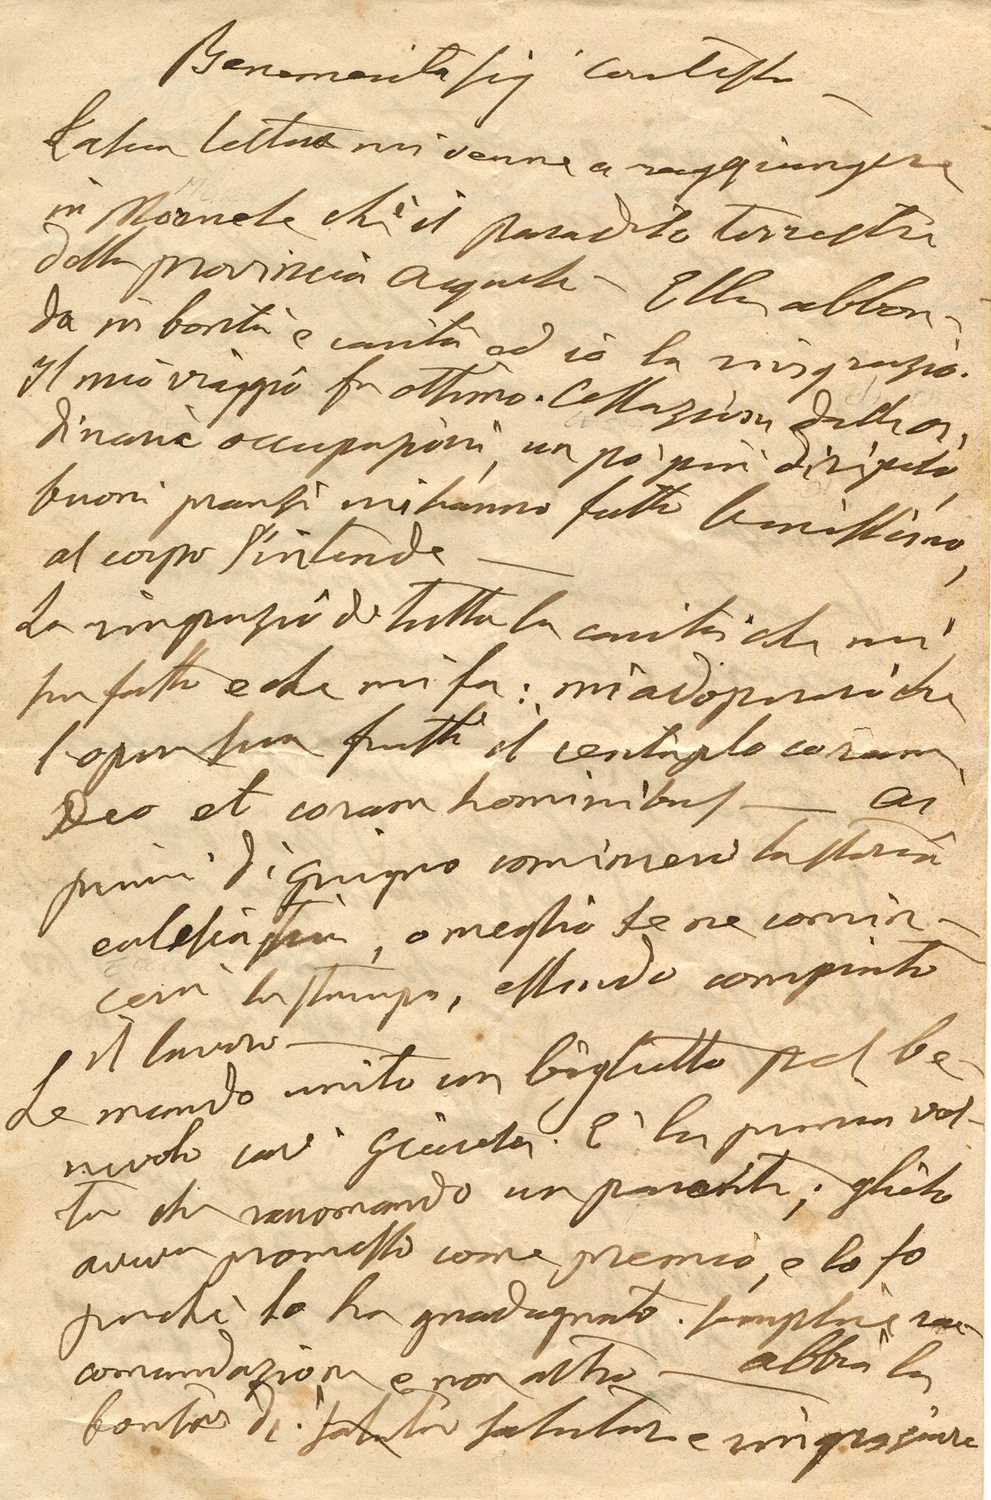 Benemerita sig contessa
La sua lettera mi venne a raggiungere
in Mornese ch'è il paradiso terrestre
della provincia acquese - Ella abbon-
da in bontà e carità ed io la ringrazio.
Il mio viaggio fu ottimo. Cessazion dalle or
dinarie occupazioni, un po' più di riposo,
buoni pranzi mi hanno fatto benissimo,
al corpo s'intende —
La ringrazio di tutta la carità che mi
ha fatto e che mi fa: mi adopererò che
l'opera sua frutti il centuplo coram
Deo et coram hominibus — Ai
primi di giugno comincerà la storia
ecclesiastica, o meglio se ne comin-
cerà la stampa, essendo compiuto
il lavoro —
Le mando unito un biglietto pel be-
nevolo cav. E' la prima vol-
ta che raccomando un parente; glielo
aveva promesso come premio, e lo fo
perchè lo ha guadagnato. Semplice rac
comandazione e non altro — abbia la
bontà di salutar e ringraziare